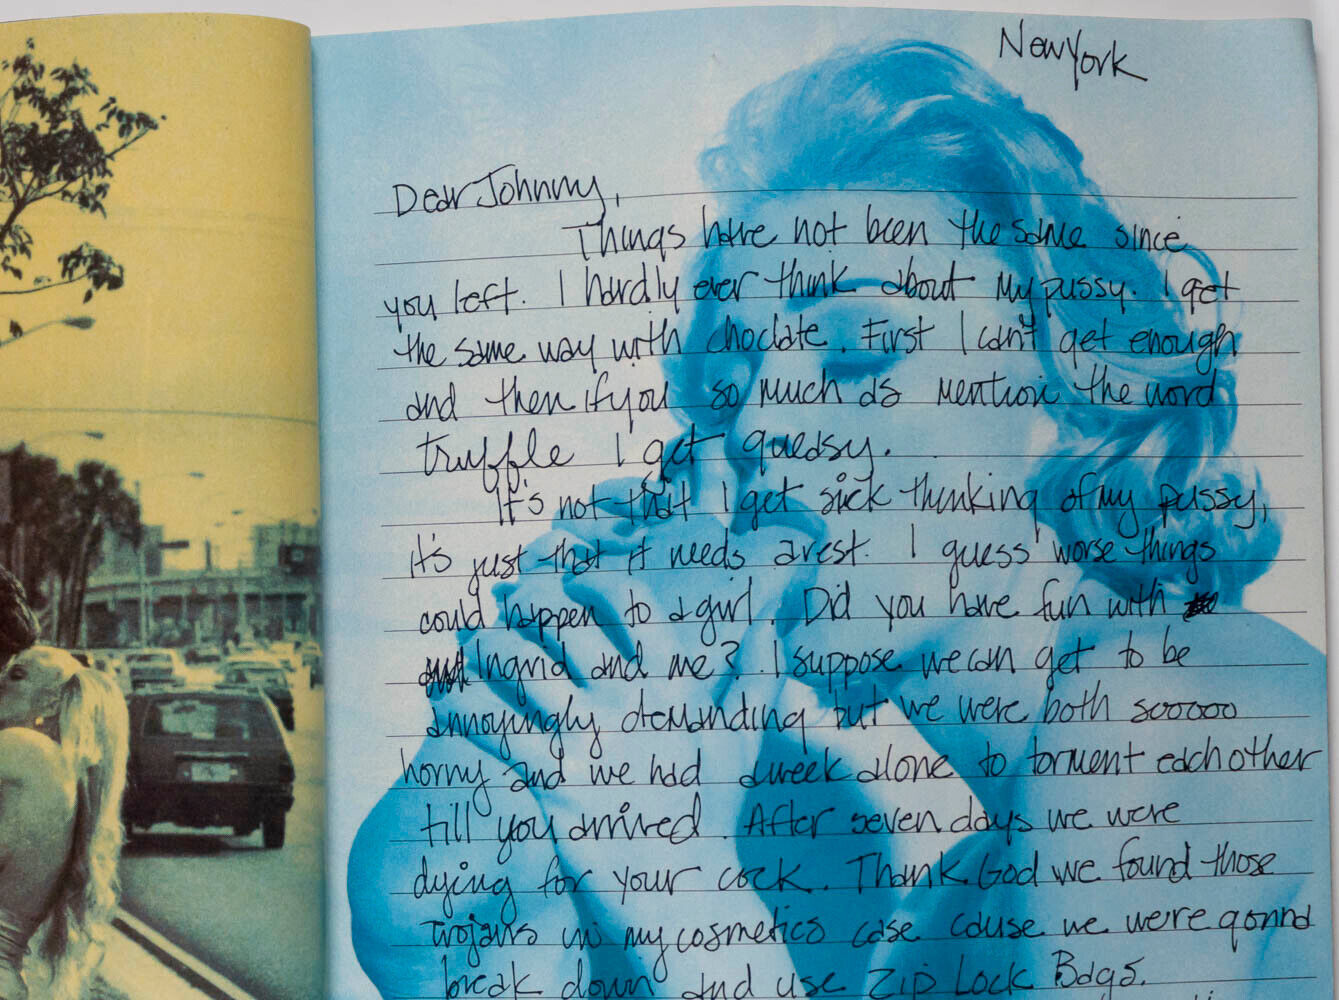 New York
Dear Johnny,
Things have not been the same since
you left. I hardly ever think about my pussy. I get
the same way with choclate. First I can't get enough
and then if you so much as mention the word
truffle I get queasy.
It's not that I get sick thinking of my pussy,
it's just that it needs a rest. I guess worse things
could happen to a girl. Did you have fun with
Ingrid and me? I suppose we can get to be
annoyingly demanding but we were both sooooo
horny and we had a week alone to torment each other
till you arrived. After seven days we were
dying for your cock. Thank God we found those
trojans in my cosmetics case cause we were gonna
break down and use Zip Lock Bags.